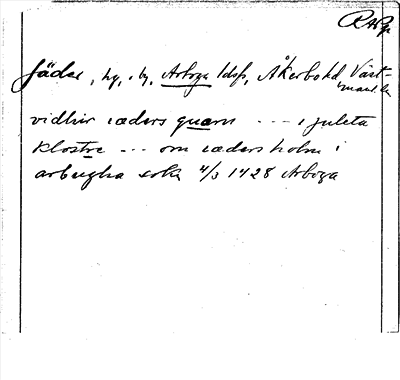 RAp
Jäder, hg, by, Arboga ldsf, Åkerbo hd, Väst-
manl. l.
vidhir iæders quærn --- i juleta
klostre --- om iæders holm i
arbugha sokn 4/3 1428 Arboga